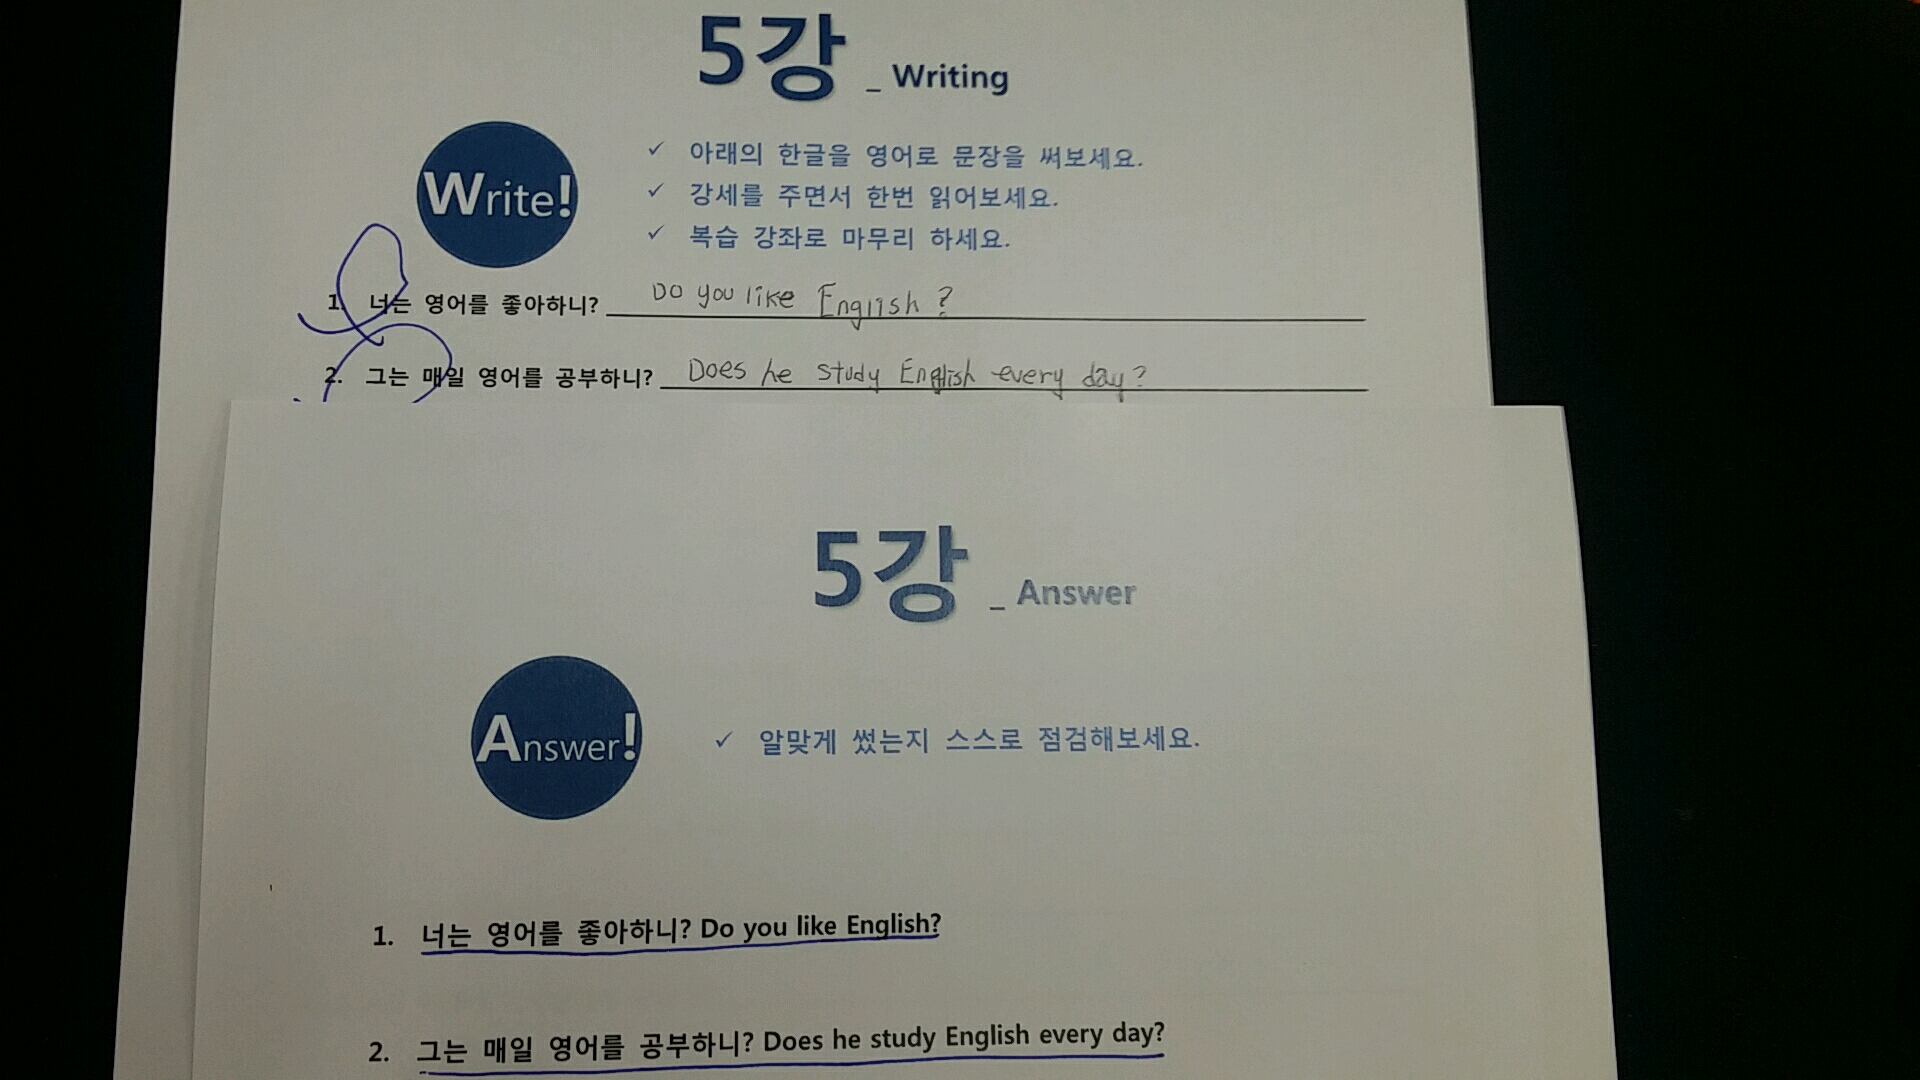 5강 _ Writing
Write!
✓ 아래의 한글을 영어로 문장을 써보세요.
✓ 강세를 주면서 한번 읽어보세요.
✓ 복습 강좌로 마무리 하세요.
1. 너는 영어를 좋아하니? Do you like English?
2. 그는 매일 영어를 공부하니? Does he study English every day?
5강 _ Answer
Answer!
✓ 알맞게 썼는지 스스로 점검해보세요.
1. 너는 영어를 좋아하니? Do you like English?
2. 그는 매일 영어를 공부하니? Does he study English every day?